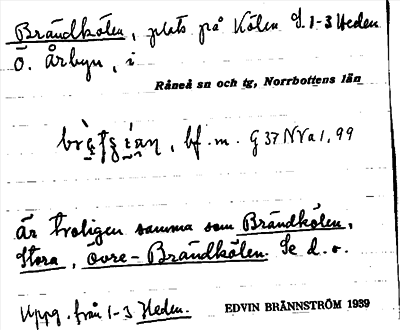 Brändkölen, plats på Kölen S. 1-3 Heden
Ö. Årbyn, i
Råneå sn och tg, Norrbottens län
bf. m. G 37 N V a 1, 99
Är troligen samma som Brändkölen,
Stora, Övre-Brändkölen. Se d. o.
Uppg. från 1-3 Heden.
EDVIN BRÄNNSTRÖM 1939